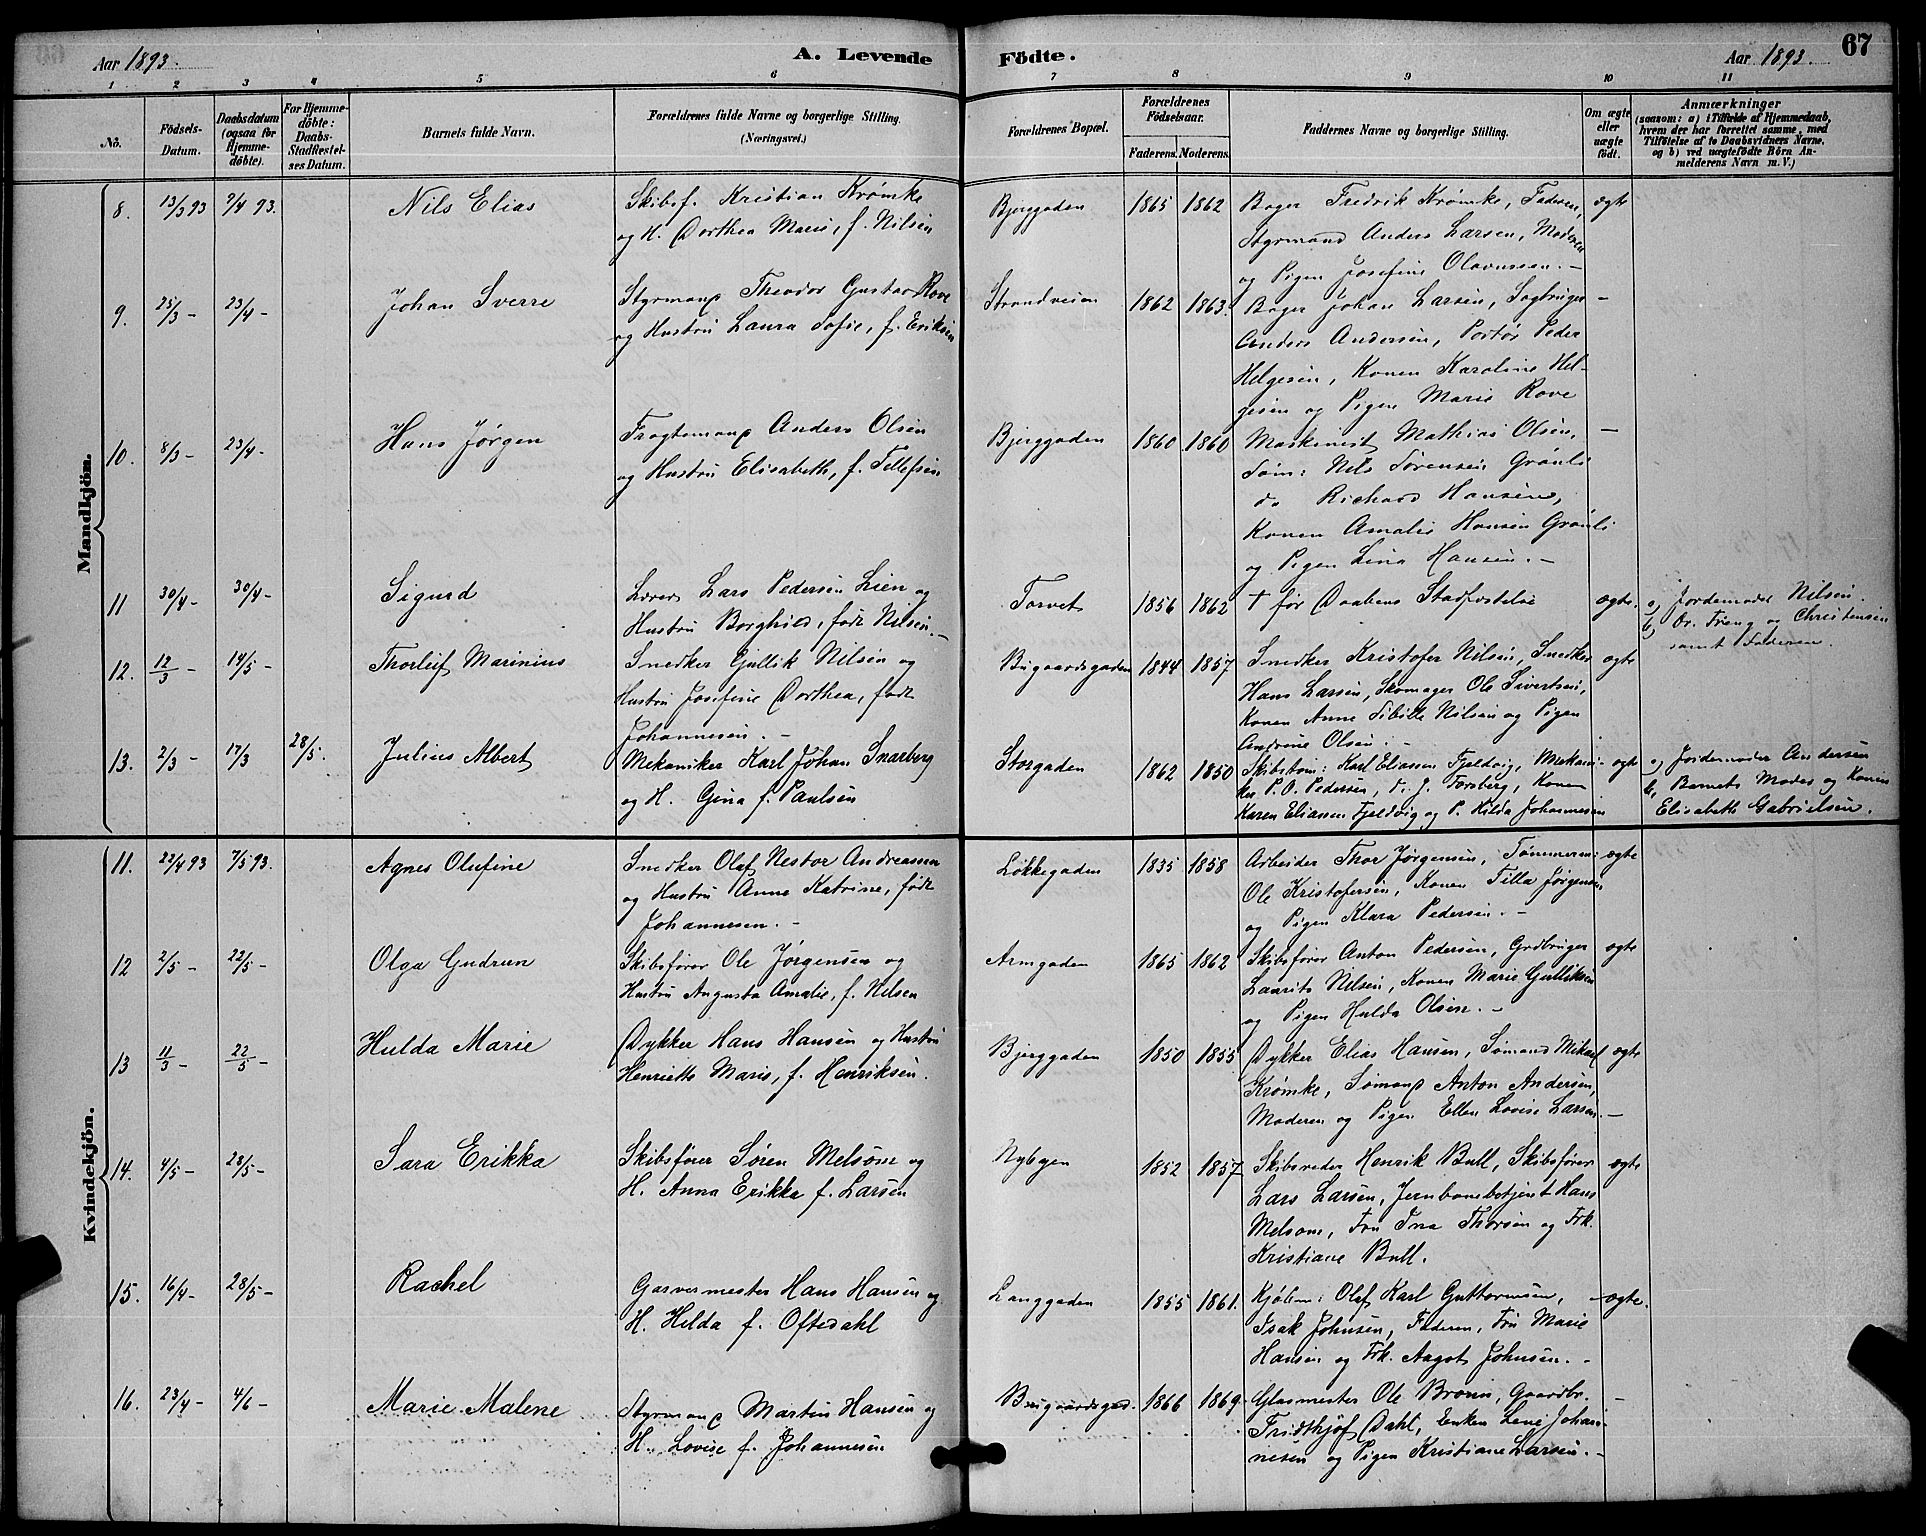 Aar 1893.
A. Levende
Födte.
Aar 1893.
67
1 2 3 4 5 6 7 8 9 10 11
No.
Födsels-Datum.
Daabsdatum (ogsaa for Hjemme-döbte).
For Hjemme-döbte: Daabs-Stadfæstel-ses Datum.
Barnets fulde Navn.
Forældrenes fulde Navne og borgerlige Stilling.
(Næringsvei.)
Forældrenes Bopæl.
Forældrenes Födselsaar.
Faderens. Moderens.
Faddernes Navne og borgerlige Stilling.
Om ægte eller uægte født.
Anmærkninger
(saasom: a) i Tilfælde af Hjemmedaab, hvem der har forrettet samme, med Tilföielse af to Daabsvidners Navne, og b) ved uægtefödte Börn Anmelderens Navn m. V.)
Mandkjön.
8. 13/3 93 9/4 93. Nils Elias
Skibsf. Kristian Krømke
og H. Dorthea Marie, f. Nilsen
Bjerggaden 1865 1862
Bager Fredrik Krømke, Faderen,
Styrmand Anders Larsen, Moderen
og Pigen Josefine Olavussen. -
ægte
9. 25/3 - 23/4 - Johan Sverre
Styrmand Theodor Gustav Rove
og Hustru Laura Sofie, f. Eriksen
Strandveien 1862 1863.
Bager Johan Larsen, Sagbruger
Anders Andersen, Portør Peder
Helgesen, Konen Karoline Hel-
gesen og Pigen Marie Rove
-
10. 8/3 - 23/4 - Hans Jørgen
Fragtemand Anders Olsen
og Hustru Elisabeth, f. Tellefsen
Bjerggaden 1860 1860
Maskinist Mathias Olsen,
Søm: Nils Sørensen Grønli
do Richard Hansen,
Konen Amalie Hansen Grønli
og Pigen Lina Hansen. -
-
11 30/4 - 30/4 - Sigurd
Lærer Lars Pedersen Lien og
Hustru Borghild, født Nilsen. -
Torvet 1856 1862
† før Daabens Stadfæstelse
ægte.
a, Jordemoder Nilsen.
b, Dr. Freng og Christensen
samt Faderen.
12. 12/3 - 14/5 - Thorleif Marinius
Snedker Gullik Nilsen og
Hustru Josefine Dorthea, født
Johannesen. -
Bugaardsgaden 1844 1857
Snedker Kristofer Nilsen, Snedker
Hans Larsen, Skomager Ole Sivertsen,
Konen Anne Sibille Nilsen og Pigen
Andrine Olsen. -
ægte
13. 2/3 - 17/3 28/5. Julius Albert
Mekaniker Karl Johan Snarberg
og H. Gina f. Paulsen
Storgaden 1862 1850
Skibstøm: Karl Eliassen Fjeldvig, Mekani-
ker P. O. Pedersen, do J. Forsberg, Konen
Karen Eliassen Fjeldvig og P. Hilda Johannesen
ægte
a, Jordemoder Andersen
b, Barnets Moder og Konen
Elisabeth Gabrielsen.
Kvindekjön.
11. 22/4 93 7/5 93. Agnes Olufine
Snedker Olaf Nestor Andreassen
og Hustru Anne Katrine, født
Johannesen. -
Løkkegaden 1835 1858
Arbeider Thor Jørgensen, Tømmerm:
Ole Kristofersen, Konen Tilla Jørgensen
og Pigen Klara Pedersen. -
ægte
12 2/5 - 22/5 - Olga Gudrun
Skibsfører Ole Jørgensen og
Hustru Augusta Amalie, f. Nilsen
Armgaden 1865 1862
Skibsfører Anton Pedersen, Grdbruger
Laurits Nilsen, Konen Marie Gulliksen
og Pigen Hulda Olsen. -
ægte
13 11/3 - 22/5 - Hulda Marie
Dykker Hans Hansen og Hustru
Henriette Marie, f. Henriksen.
Bjerggaden 1850 1855
Dykker Elias Hansen, Sømand Mikael
Krømke, Sømand Anton Andersen,
Moderen og Pigen Ellen Lovise Larsen. -
ægte
14. 4/5 - 28/5 - Sara Erikka
Skibsfører Søren Melsom og
H. Anna Erikka f. Larsen
Nybyen 1852 1857
Skibsreder Henrik Bull, Skibsfører
Lars Larsen, Jernbanebetjent Hans
Melsom, Fru Ina Thorsen og Frk.
Kristiane Bull.
ægte
15. 16/4 - 28/5 - Rachel
Garvermester Hans Hansen og
H. Hilda f. Oftedahl
Langgaden 1855 1861.
Kjøbm: Olaf Karl Guttormsen,
Isak Johnsen, Faderen, Fru Marie
Hansen og Frk. Aagot Johnsen. -
ægte.
16. 23/4 - 4/6 - Marie Malene
Styrmand Martin Hansen og
H. Lovise f. Johannesen
Bugaardsgad. 1866 1869.
Glasmester Ole Bronn, Gaardbr.
Fridthjof Dahl, Enken Lene Johan-
nesen og Pigen Kristiane Larsen. -
-